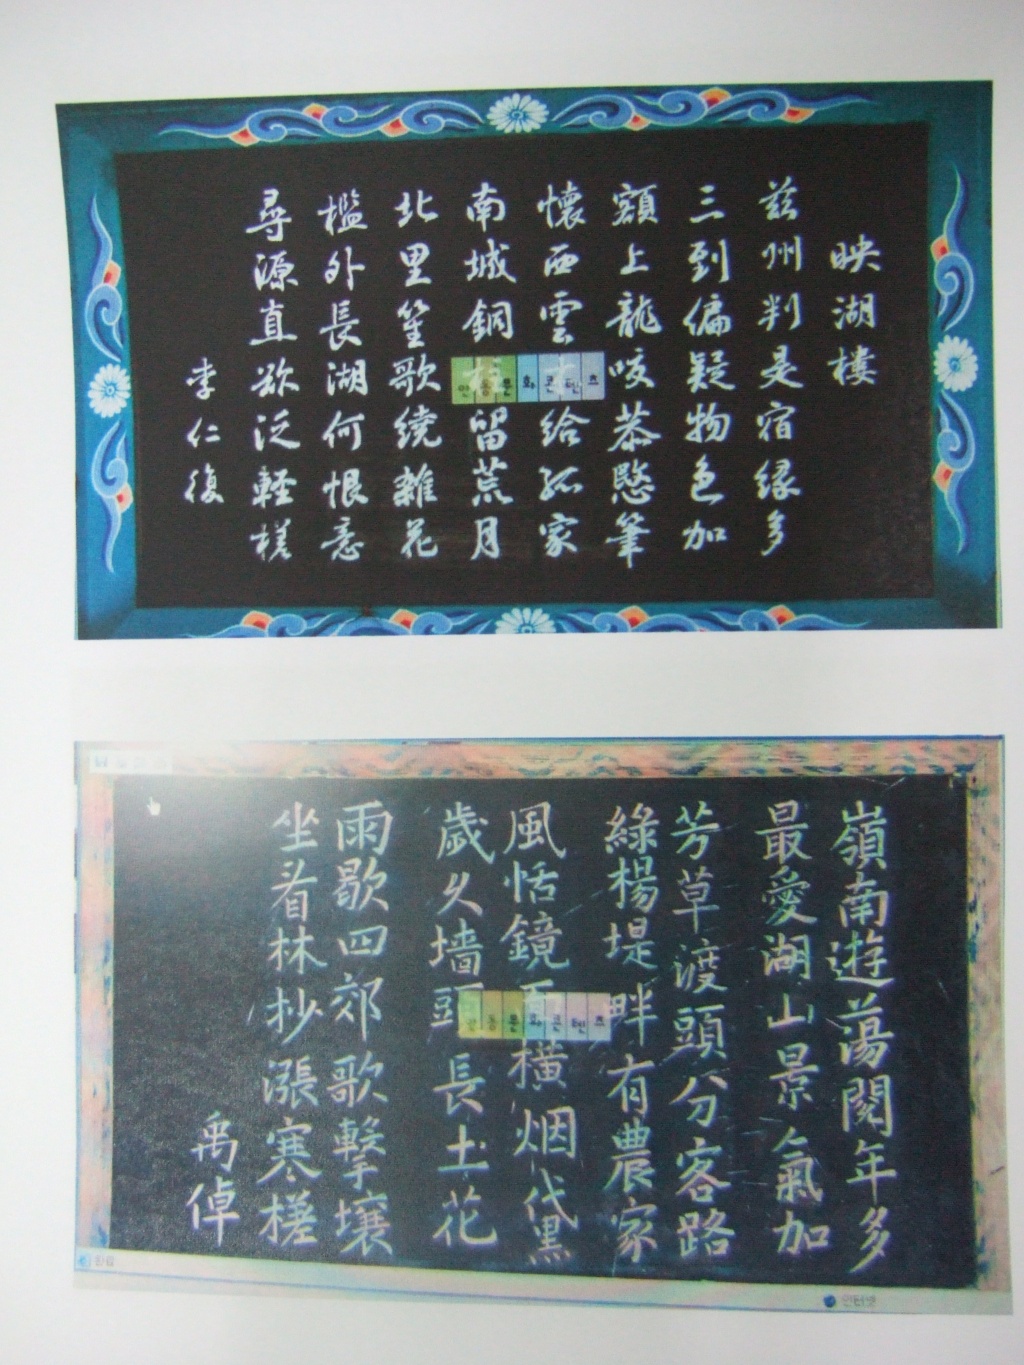 映湖樓
茲州判是宿緣多
三到偏疑物色加
額上龍咬恭愍筆
懷西雲 給孤家
南城銅柱留荒月
北里笙歌繞雜花
檻外長湖何恨意
尋源直欲泛輕槎
李仁復
안동문화콘텐츠
嶺南遊蕩閱年多
最愛湖山景氣加
芳草渡頭分客路
綠楊堤畔有農家
風恬鏡面橫烟代黑
歲久墻頭長土花
雨歇四郊歌擊壤
坐看林杪漲寒槎
禹倬
안동문화콘텐츠
인터넷